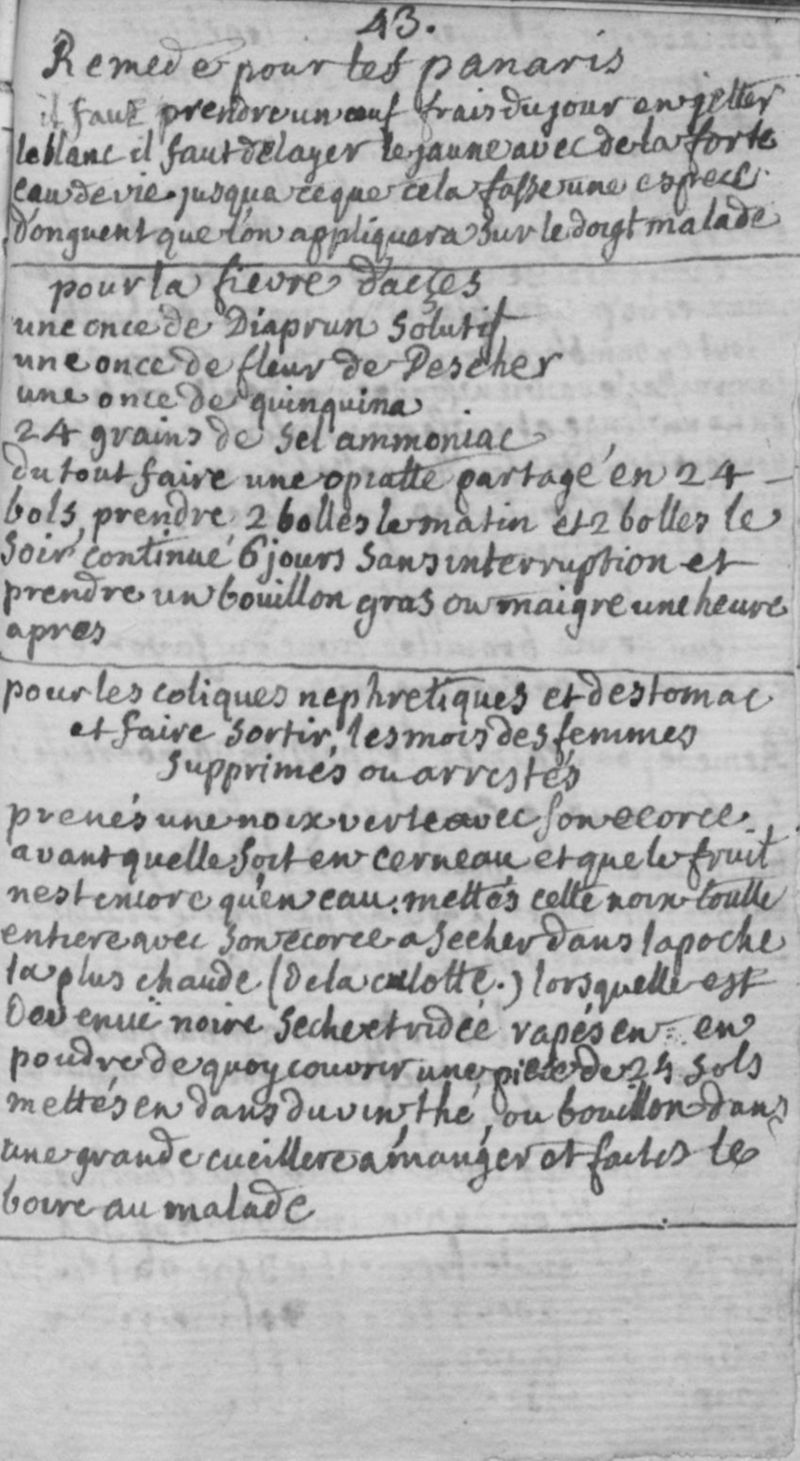 43.
Remede pour les panaris
il faut prendre un œuf frais du jour en jetter
le blanc il faut delayer le jaune avec de la forte
eau de vie jusqua ce que cela fasse une espece
d'onguent que l'on appliquera sur le doigt malade
pour la fievre d'acçes
une once de Diaprun solutif
une once de fleur de Pescher
une once de quinquina
24 grains de sel ammoniac
du tout faire une opiatte partagé en 24
bols, prendre 2 bolles le matin et 2 bolles le
soir continué 6 jours sans interruption et
prendre un bouillon gras ou maigre une heure
apres
pour les coliques nephretiques et destomac
et faire sortir les mois des femmes
supprimés ou arrestés
prenés une noix verte avec son ecorce
avant quelle soit en cerneau et que le fruit
nest encore qu'en eau. mettés cette noix toutte
entiere avec son ecorce a secher dans la poche
la plus chaude (de la culotte.) lorsquelle est
devenuë noire seche et ridée rapés en en
poudre de quoy couvrir une piece de 24 sols
mettés en dans du vin thé, ou bouillon dans
une grande cueillere a manger et faites le
boire au malade